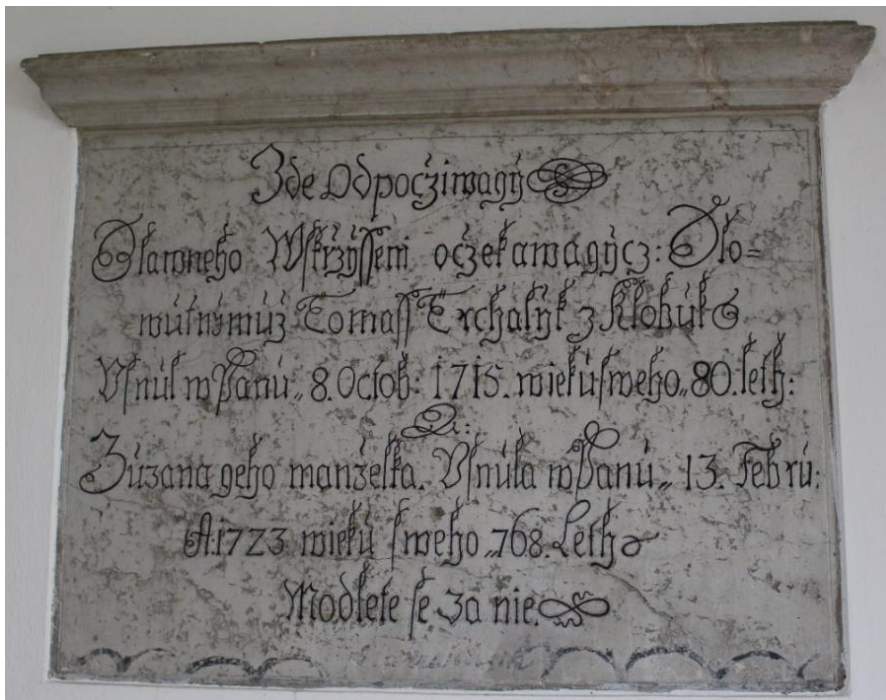 Zde Odpocżiwagÿ
Slawneho Wskrżÿsseni ocżekawagÿcz: Slo=
wútnÿmúż Tomass Erchalÿk z Klobúk
Usnúl w Panú„ 8. Octob: 1715. wiekú sweho„ 80. leth:
A:
Zúzana geho manżelka. Usnúla w Panú„ 13. Febrú:
A. 1723 wiekú sweho„ 768. Leth
Modlete se za nie.